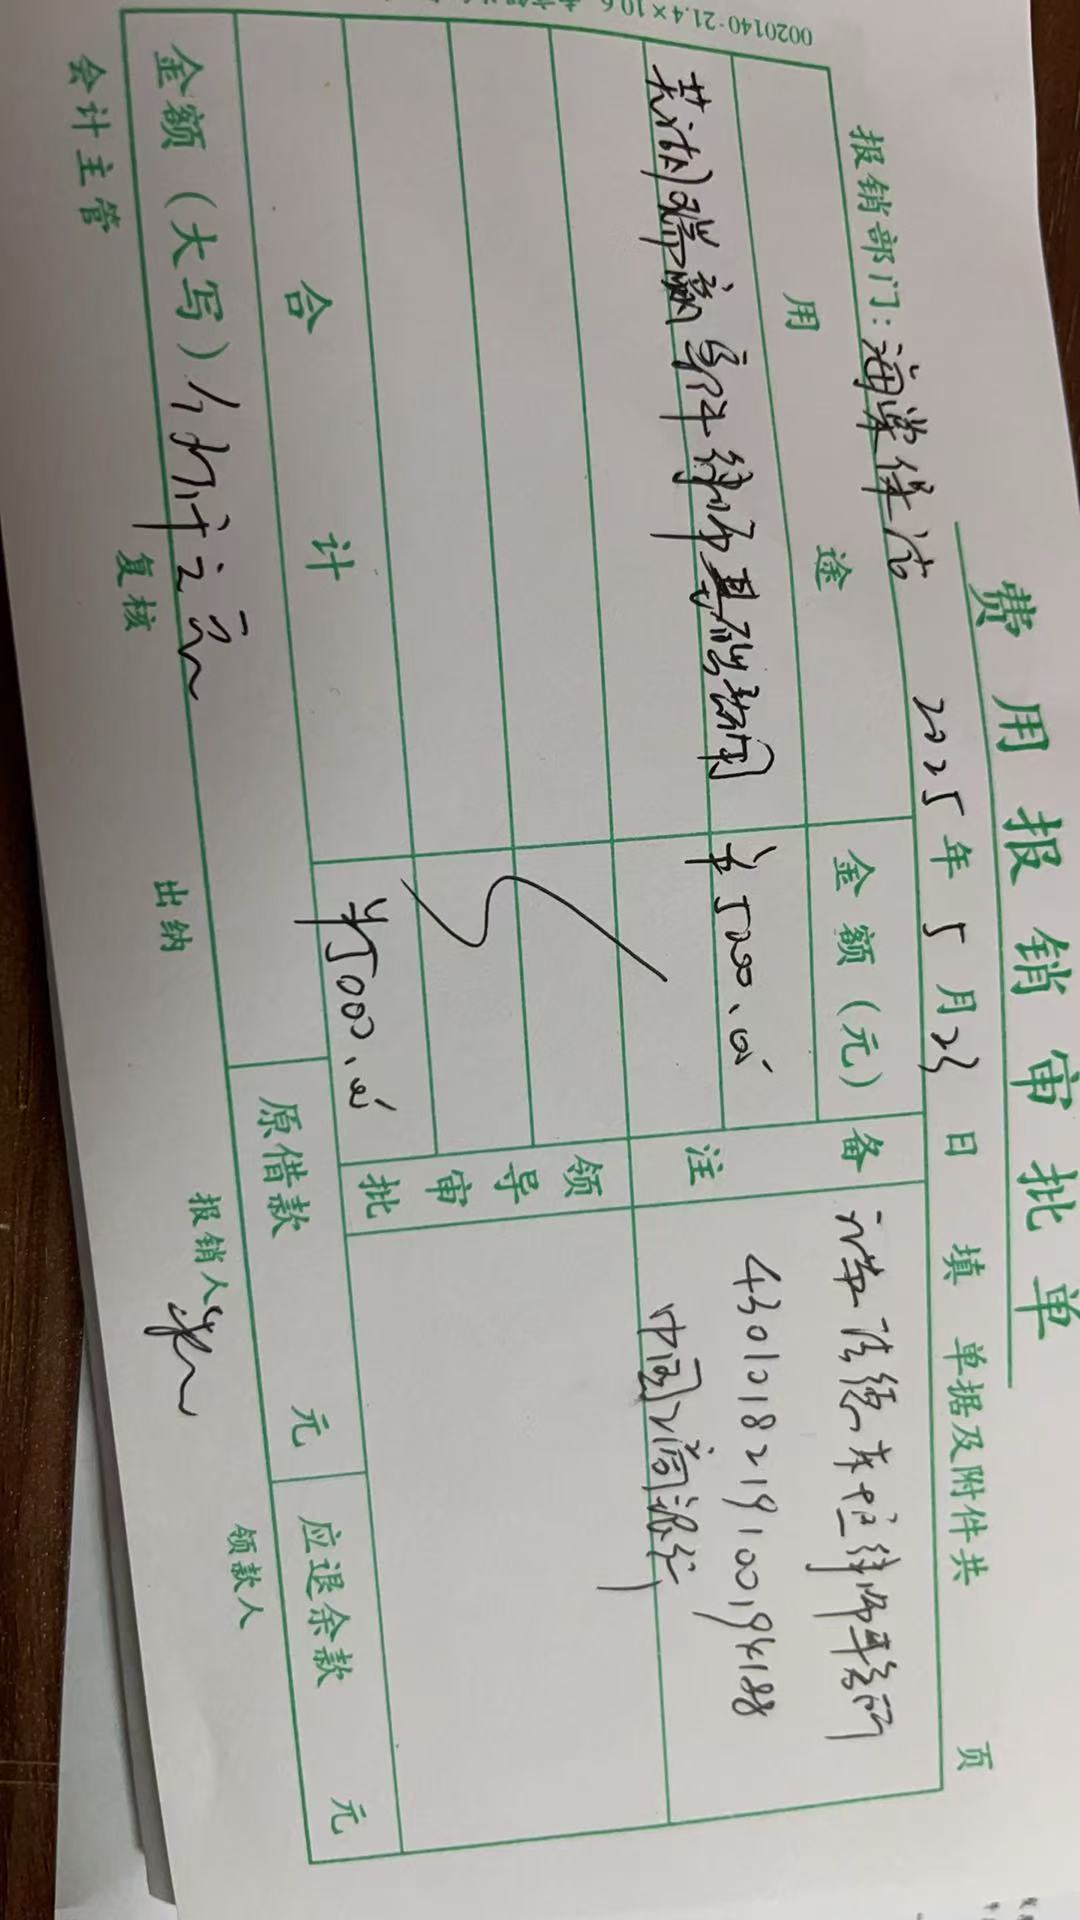 费用报销审批单
报销部门：海棠保洁 2025年5月23日填 单据及附件共 页
用途 金额（元） 备注
律师基础费用 ¥5000.00
律师事务所
4301018219100194188
中国工商银行
领导审批
合计 ¥5000.00
金额（大写）伍仟元 原借款 元 应退余款 元
会计主管 复核 出纳 报销人 领款人
0020140-21.4×10.6